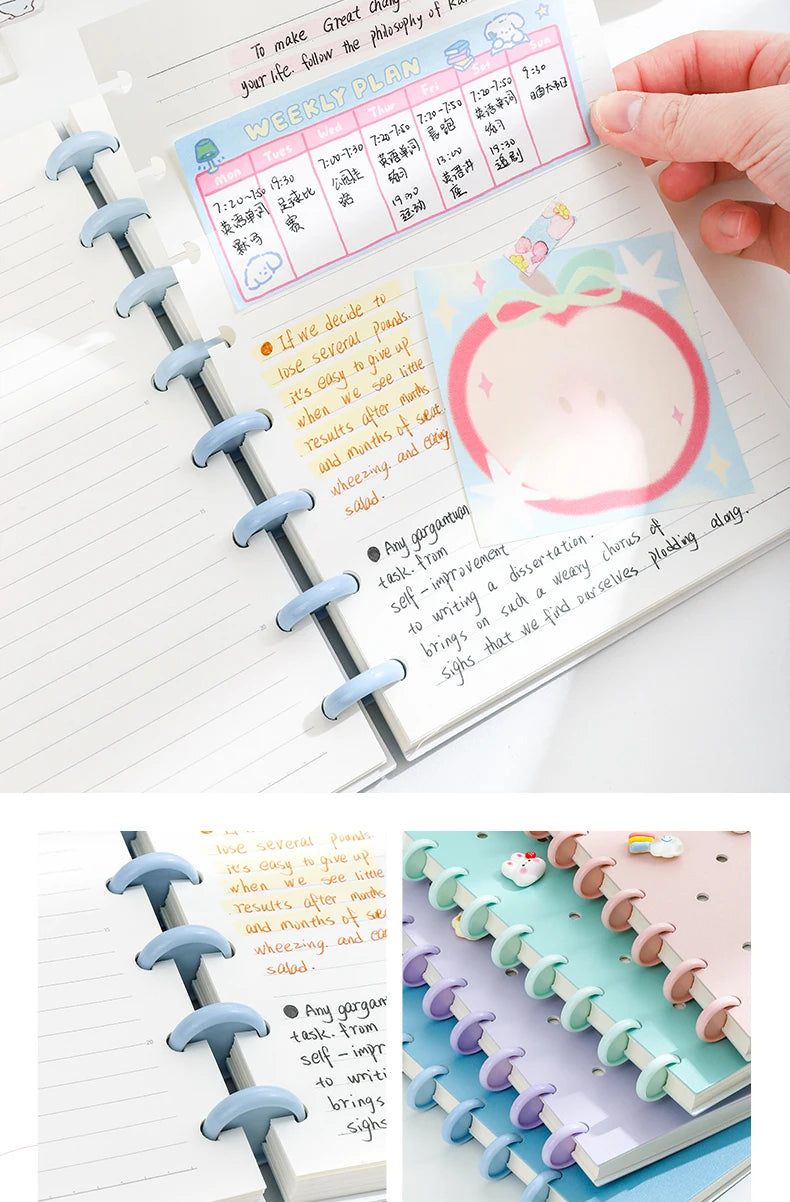 To make Great chang
your life. follow the philosophy of Kai
WEEKLY PLAN
Mon Tues Wed Thur Fri Sat Sun
7:20~7:50
英语单词
默写
19:30
足球比
赛
7:00-7:30
公园走
路
7:20-7:50
英语单词
练习
19:30
运动
7:20-7:50
晨跑
13:00
英语讲
座
7:20-7:50
英语单词
练习
19:30
追剧
9:30
If we decide to
lose several pounds.
it's easy to give up
when we see little
results after months
and months of sweat
wheezing. and eating
salad.
Any gargantuan
task. from
self-improvement
to writing a dissertation.
brings on such a weary chorus of
sighs that we find ourselves plodding along.
10
15
20
lose several pounds.
it's easy to give up
when we see little
results after months
and months of swea
wheezing. and ea
salad.
Any gargan
task. from
self-impr
to writi
brings
sighs
15
20